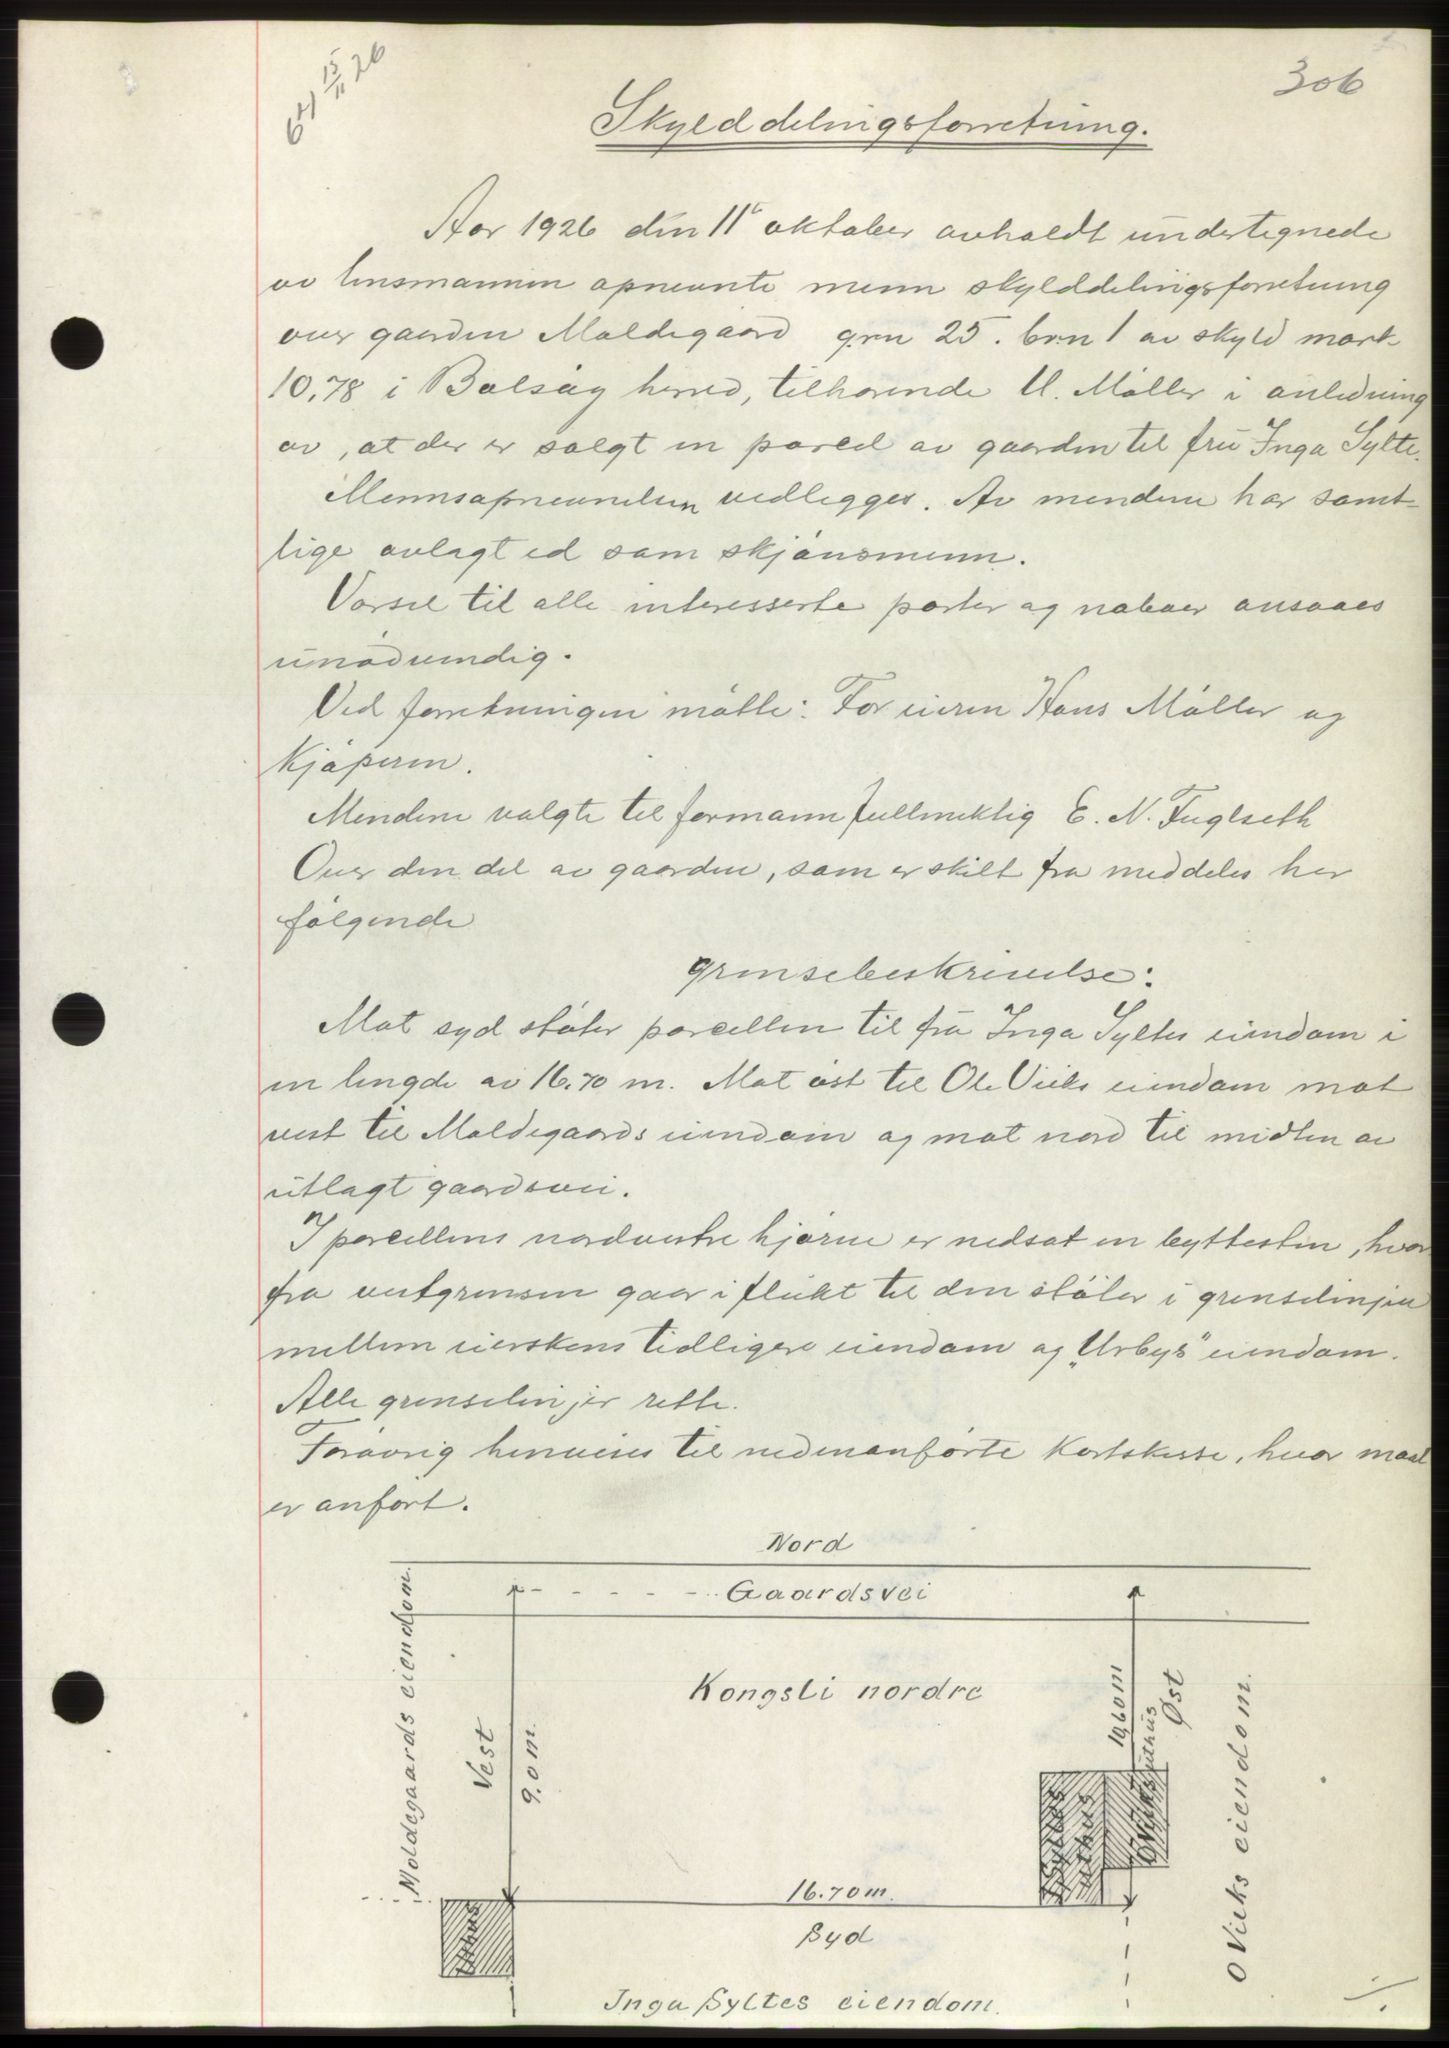 306
671 15/11 26
Skylddelingsforretning.
Aar 1926 den 11te oktober avholdt undertegnede
av lensmannen opnevnte menn skylddelingsforretning
over gaarden Moldegaard grn 25. brn 1 av skyld mark
10,78 i Bolsöy herred, tilhørende U. Möller i anledning
av, at der er solgt en parcel av gaarden til fru Inga Sylte.
Mennsopnevnelsen vedlegges. Av mendene har samt-
lige avlagt ed som skjönsmenn.
Varsel til alle interesserte parter og naboer ansaaes
unödvendig.
Ved forretningen mötte: For eieren Hans Möller og
kjöperen.
Mendene valgte til formann fullmektig E. N. Fuglseth
Over den del av gaarden, som er skilt fra meddeles her
fölgende
grensebeskrivelse:
Mot syd stöter parcellen til fru Inga Syltes eiendom i
en lengde av 16.70 m. Mot öst til Ole Vieks eiendom mot
vest til Moldegaards eiendom og mot nord til midten av
utlagt gaardsvei.
I parcellens nordvestre hjörne er nedsat en byttesten, hvor
fra vestgrensen gaar i flukt til den stöter i grenselinjen
mellem eierskens tidligere eiendom og "Urbys" eiendom.
Alle grenselinjer rette.
Forövrig henvises til nedenanförte kartskisse, hvor maal
er anfört.
Nord
Gaardsvei
Moldegaards eiendom.
Vest
9.0 m.
Kongsli nordre
10,60 m
Øst
O Vieks uthus
O Vieks eiendom.
16.70 m.
Syd
Inga Syltes eiendom.